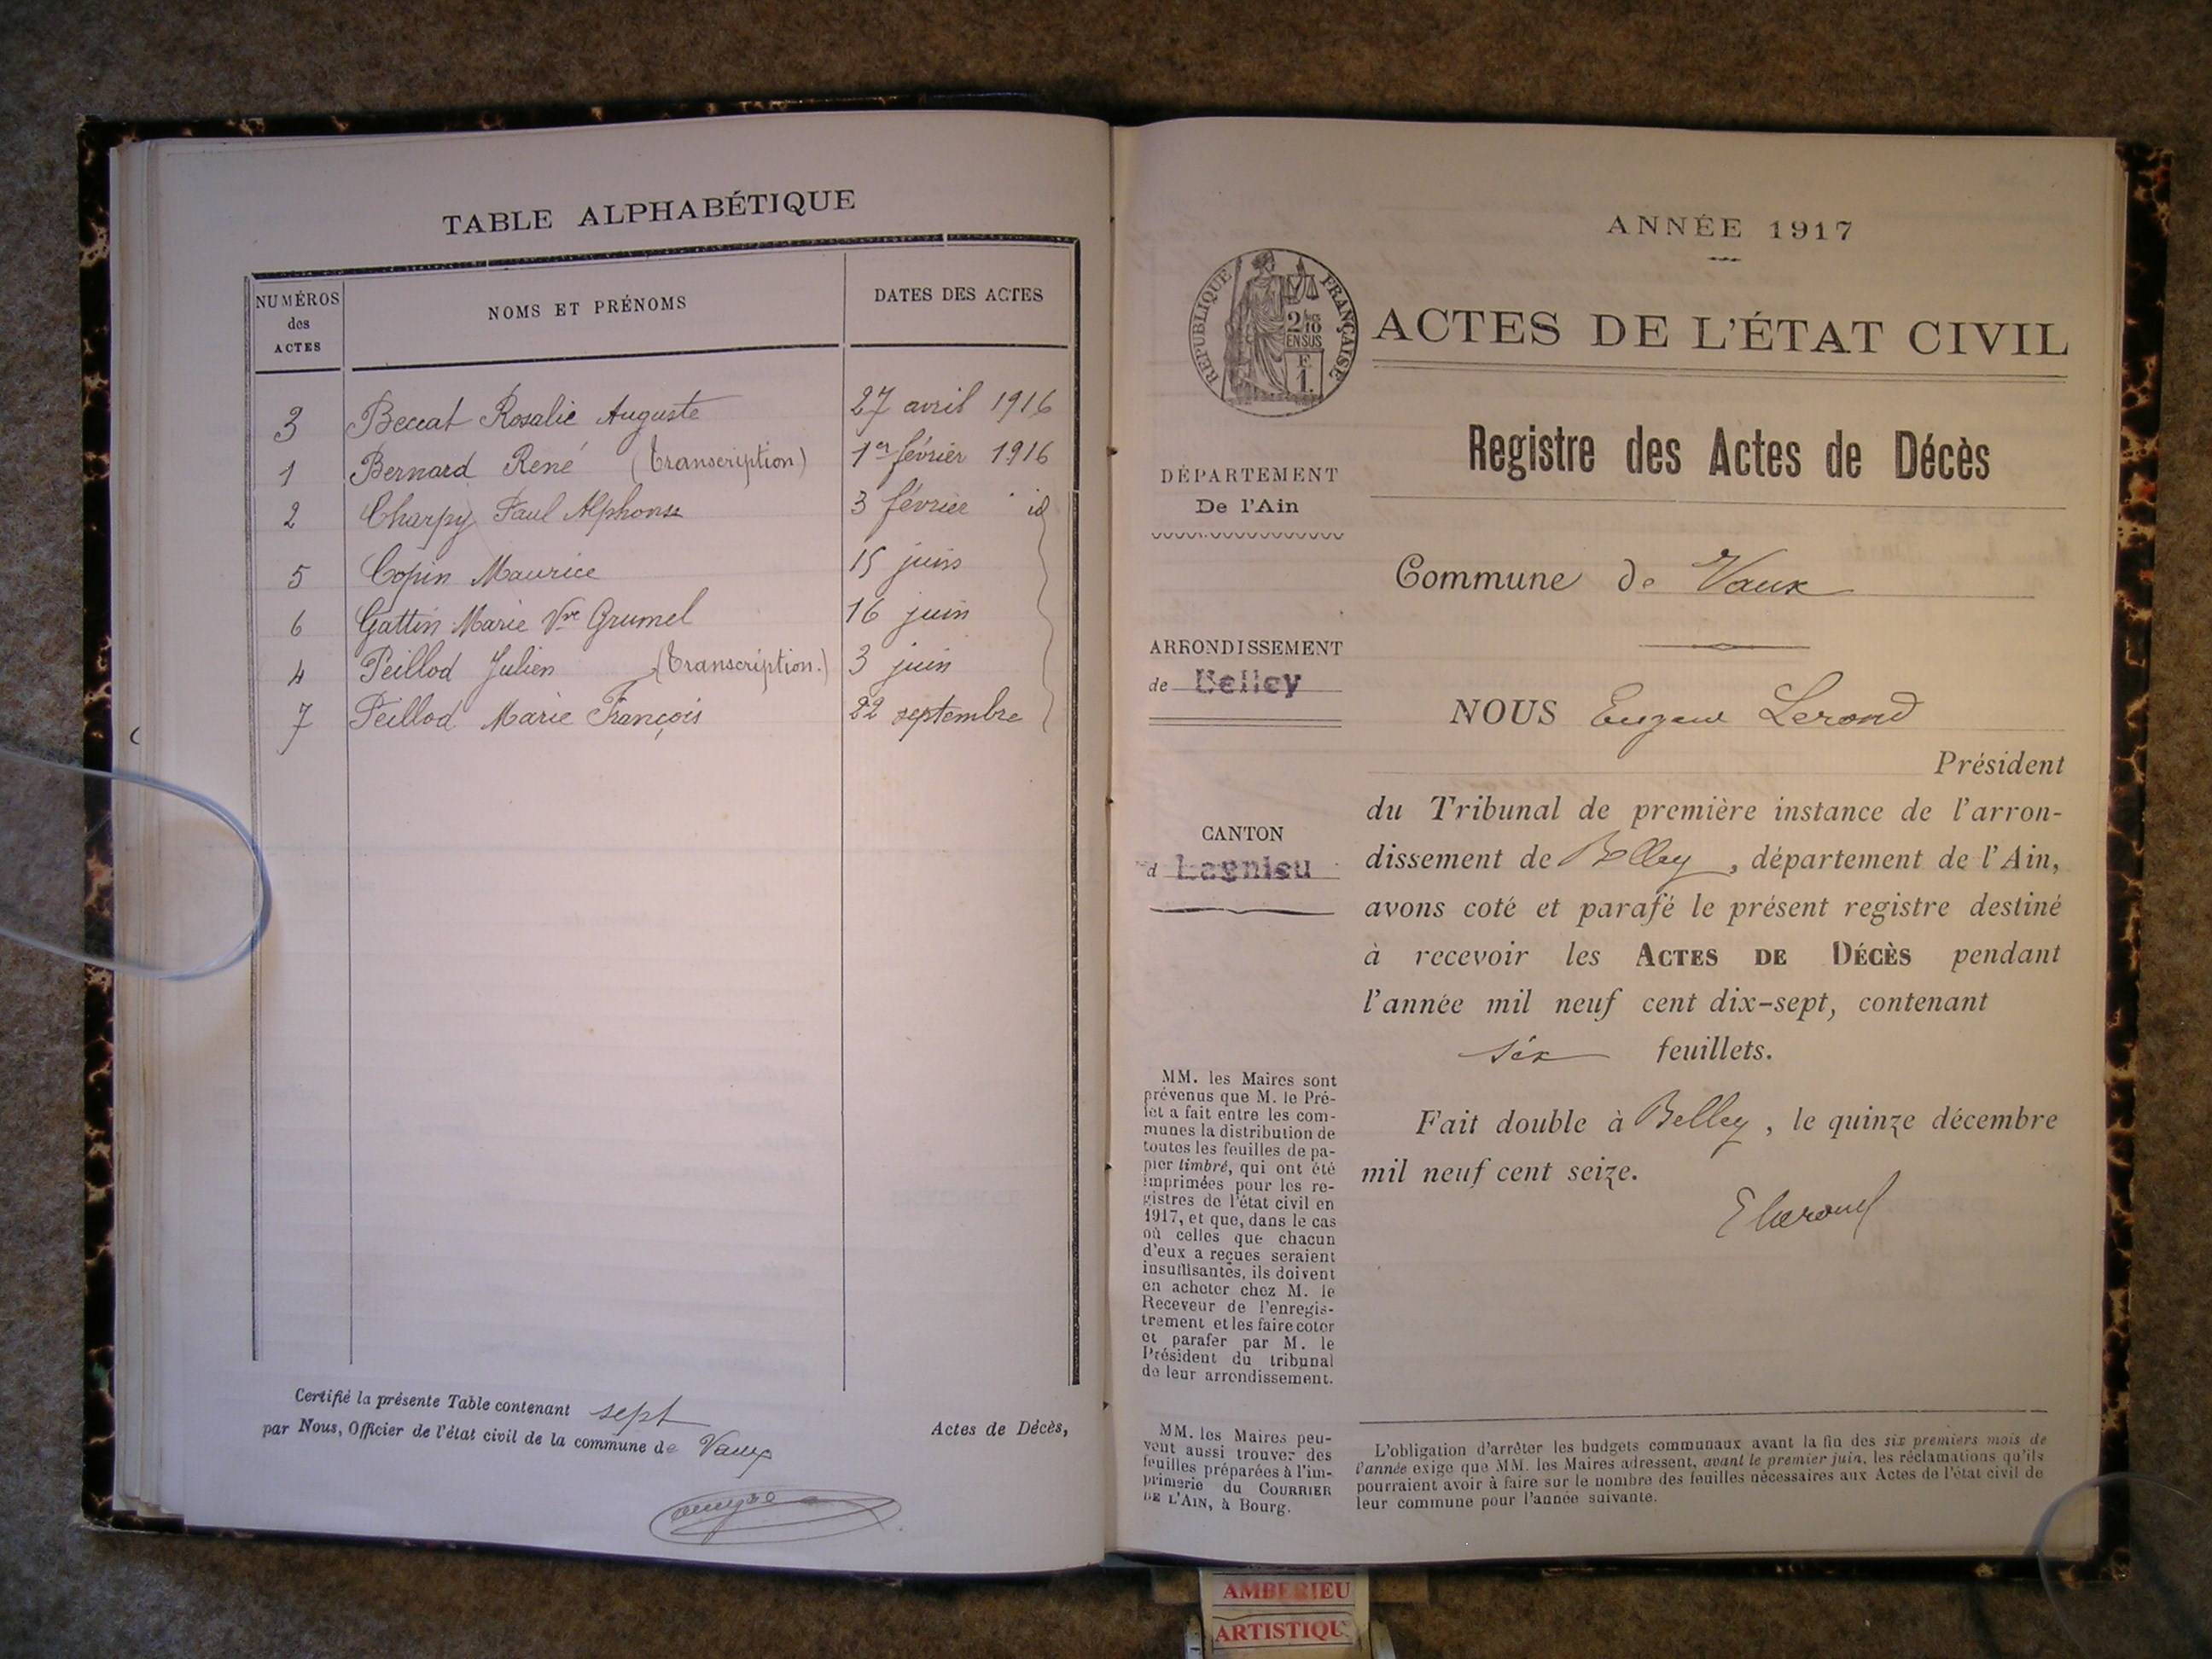 TABLE ALPHABÉTIQUE
NUMÉROS des ACTES
NOMS ET PRÉNOMS
DATES DES ACTES
3 Beccat Rosalie Auguste 27 avril 1916
1 Bernard René (transcription) 1er février 1916
2 Charpy Paul Alphonse 3 février id
5 Copin Maurice 15 juin
6 Gattin Marie Vve Grumel 16 juin
4 Peillod Julien (transcription.) 3 juin
7 Peillod Marie François 22 septembre
Certifié la présente Table contenant sept Actes de Décès,
par Nous, Officier de l'état civil de la commune de Vaux
ANNÉE 1917
RÉPUBLIQUE FRANÇAISE
2/10
EN SUS
F
1.
ACTES DE L'ÉTAT CIVIL
Registre des Actes de Décès
DÉPARTEMENT
De l'Ain
ARRONDISSEMENT
de Belley
CANTON
d Lagnieu
MM. les Maires sont
prévenus que M. le Pré-
fet a fait entre les com-
munes la distribution de
toutes les feuilles de pa-
pier timbré, qui ont été
imprimées pour les re-
gistres de l'état civil en
1917, et que, dans le cas
où celles que chacun
d'eux a reçues seraient
insuffisantes, ils doivent
en acheter chez M. le
Receveur de l'enregis-
trement et les faire coter
et parafer par M. le
Président du tribunal
de leur arrondissement.
MM. les Maires peu-
vent aussi trouver des
feuilles préparées à l'im-
primerie du COURRIER
DE L'AIN, à Bourg.
Commune de Vaux
NOUS Eugene Lerond
Président
du Tribunal de première instance de l'arron-
dissement de Belley, département de l'Ain,
avons coté et parafé le présent registre destiné
à recevoir les ACTES DE DÉCÈS pendant
l'année mil neuf cent dix-sept, contenant
six feuillets.
Fait double à Belley, le quinze décembre
mil neuf cent seize.
E Lerond
L'obligation d'arrêter les budgets communaux avant la fin des six premiers mois de
l'année exige que MM. les Maires adressent, avant le premier juin, les réclamations qu'ils
pourraient avoir à faire sur le nombre des feuilles nécessaires aux Actes de l'état civil de
leur commune pour l'année suivante.
AMBERIEU
ARTISTIQU